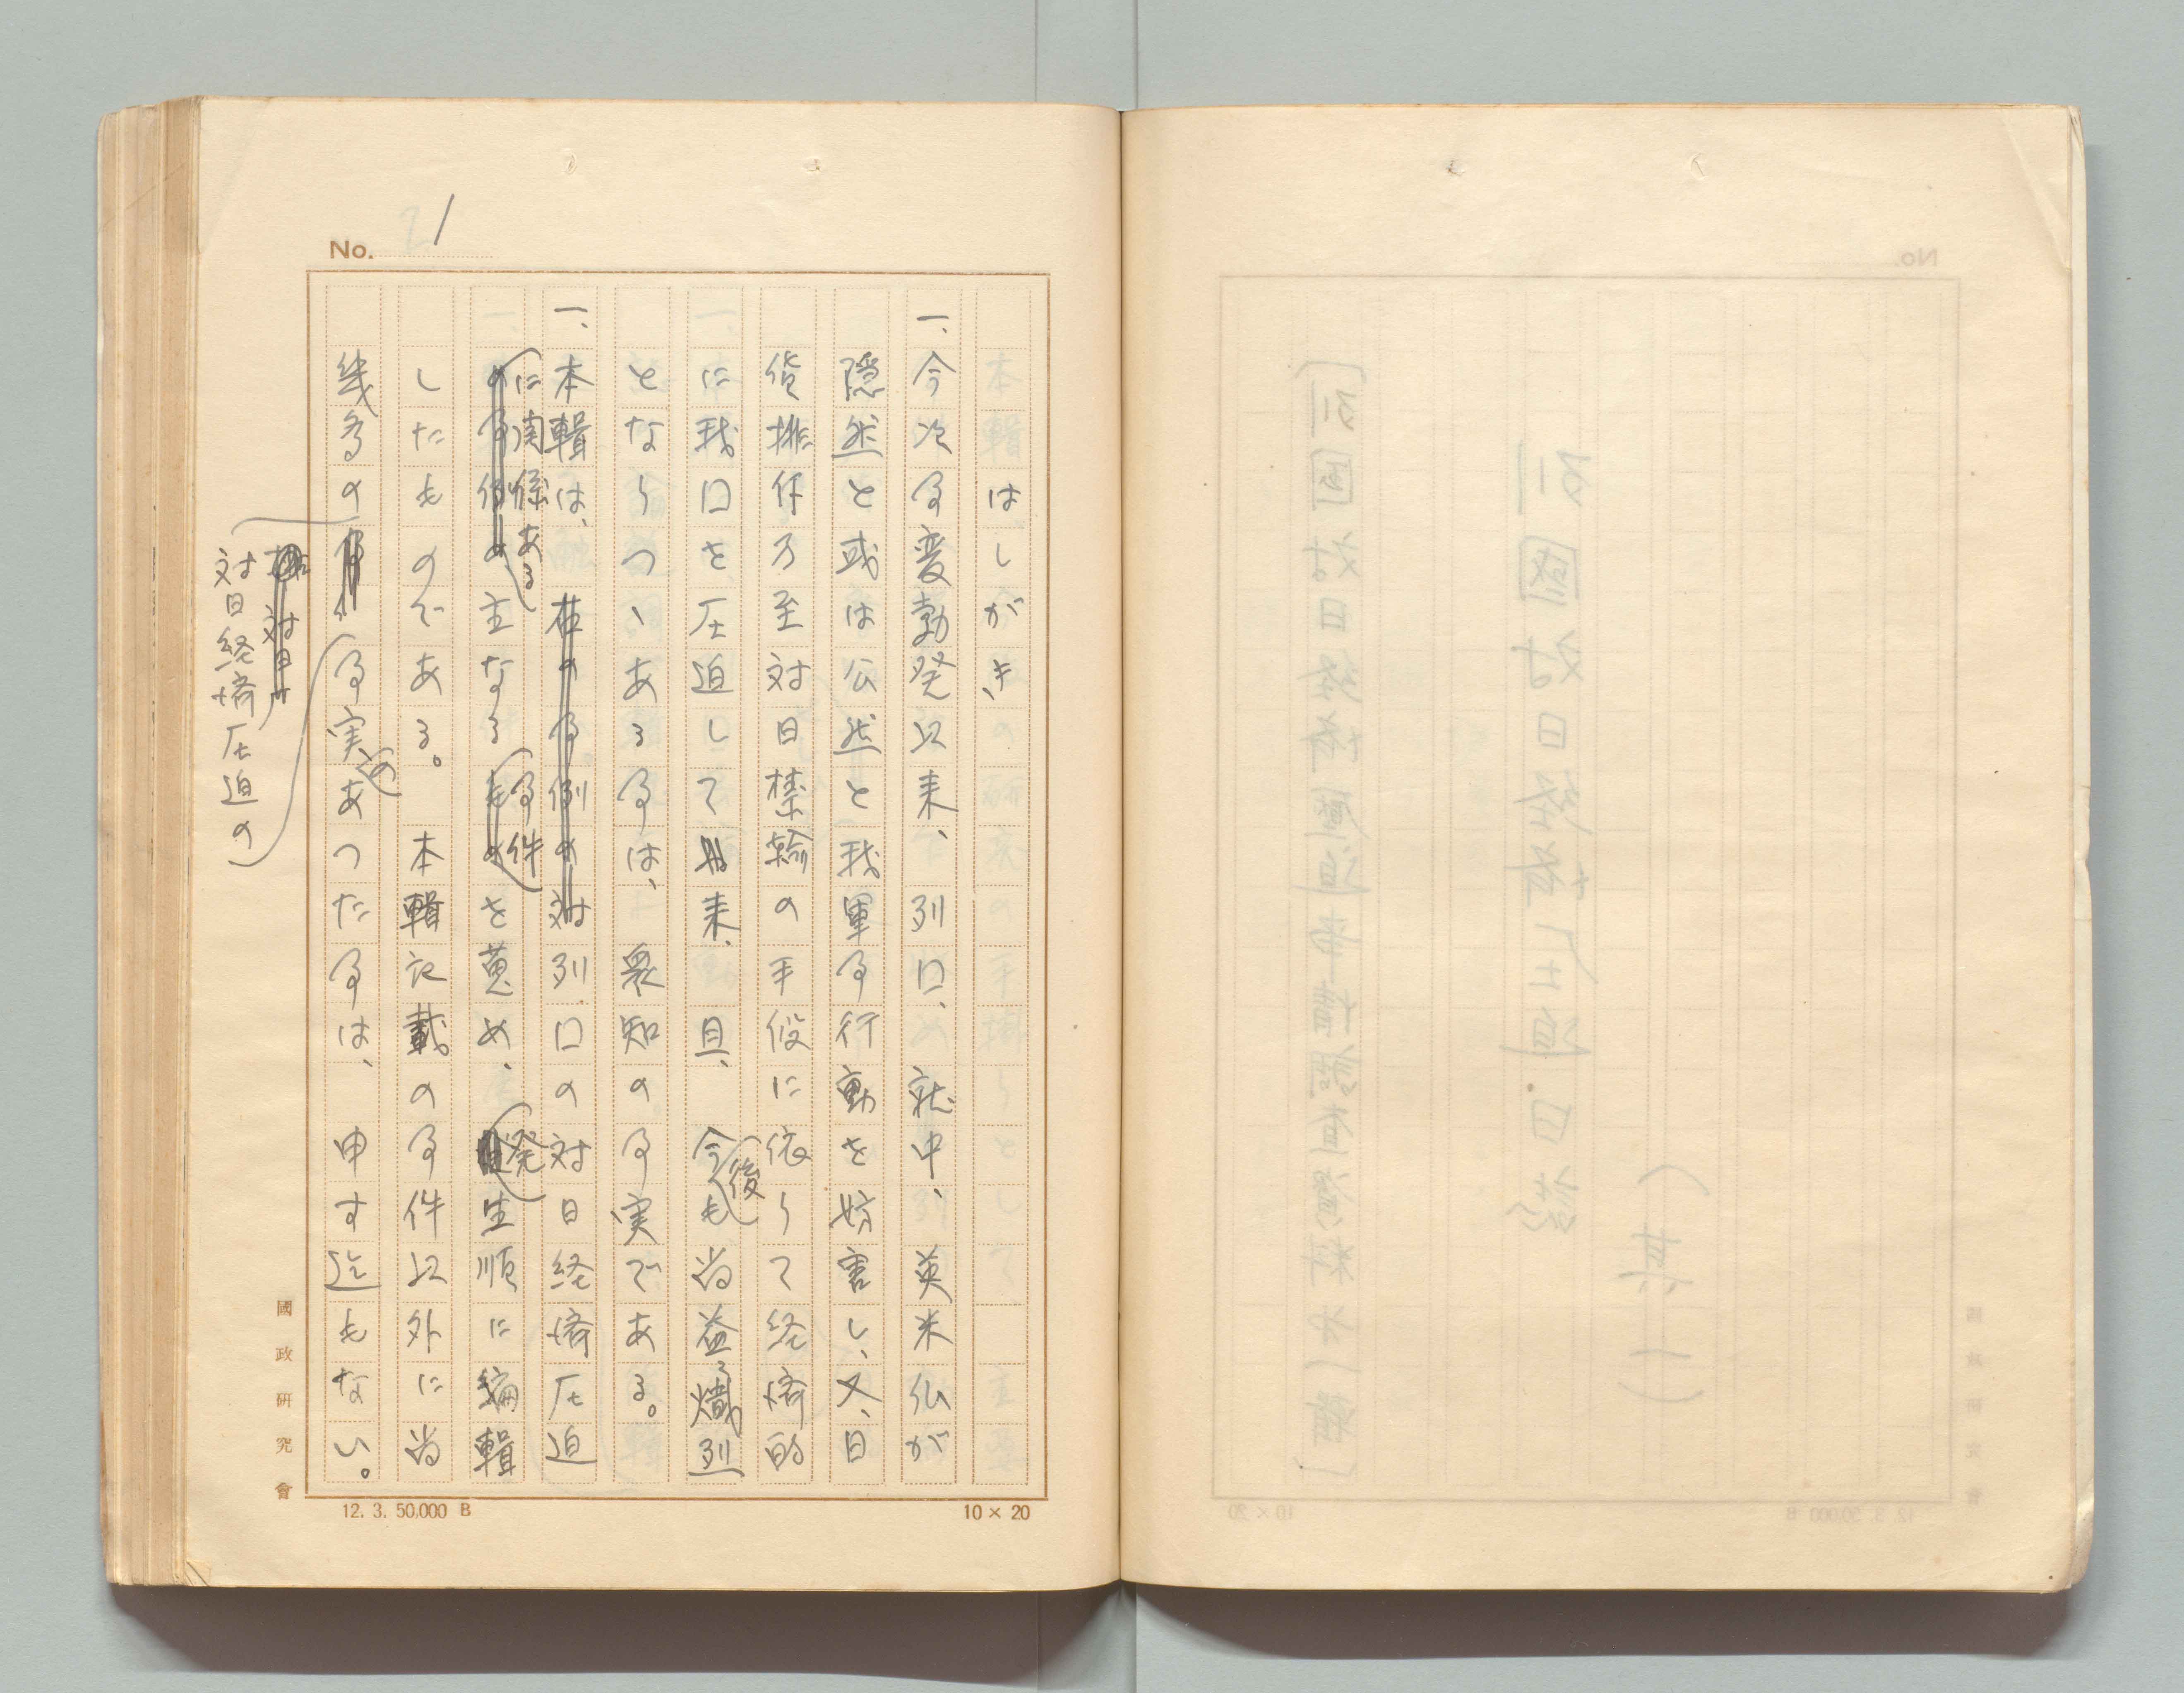 No. 1
はしがき
一、今次事変勃発以来、列口、就中、英米仏が
隠然と或は公然と我軍事行動を妨害し、又、日
貨排斥乃至対日禁輸の手段に依りて経済的
に我口を圧迫して来、且、今後も尚益々熾烈
となりつゝある事は、衆知の事実である。
一、本輯は、列口の対日経済圧迫
に関係ある主なる事件を蒐め、発生順に編輯
したものである。本輯記載の事件以外に尚
幾多の対日経済圧迫の事実のあつた事は、申す迄もない。
國政研究會
12. 3. 50,000 B
10 × 20